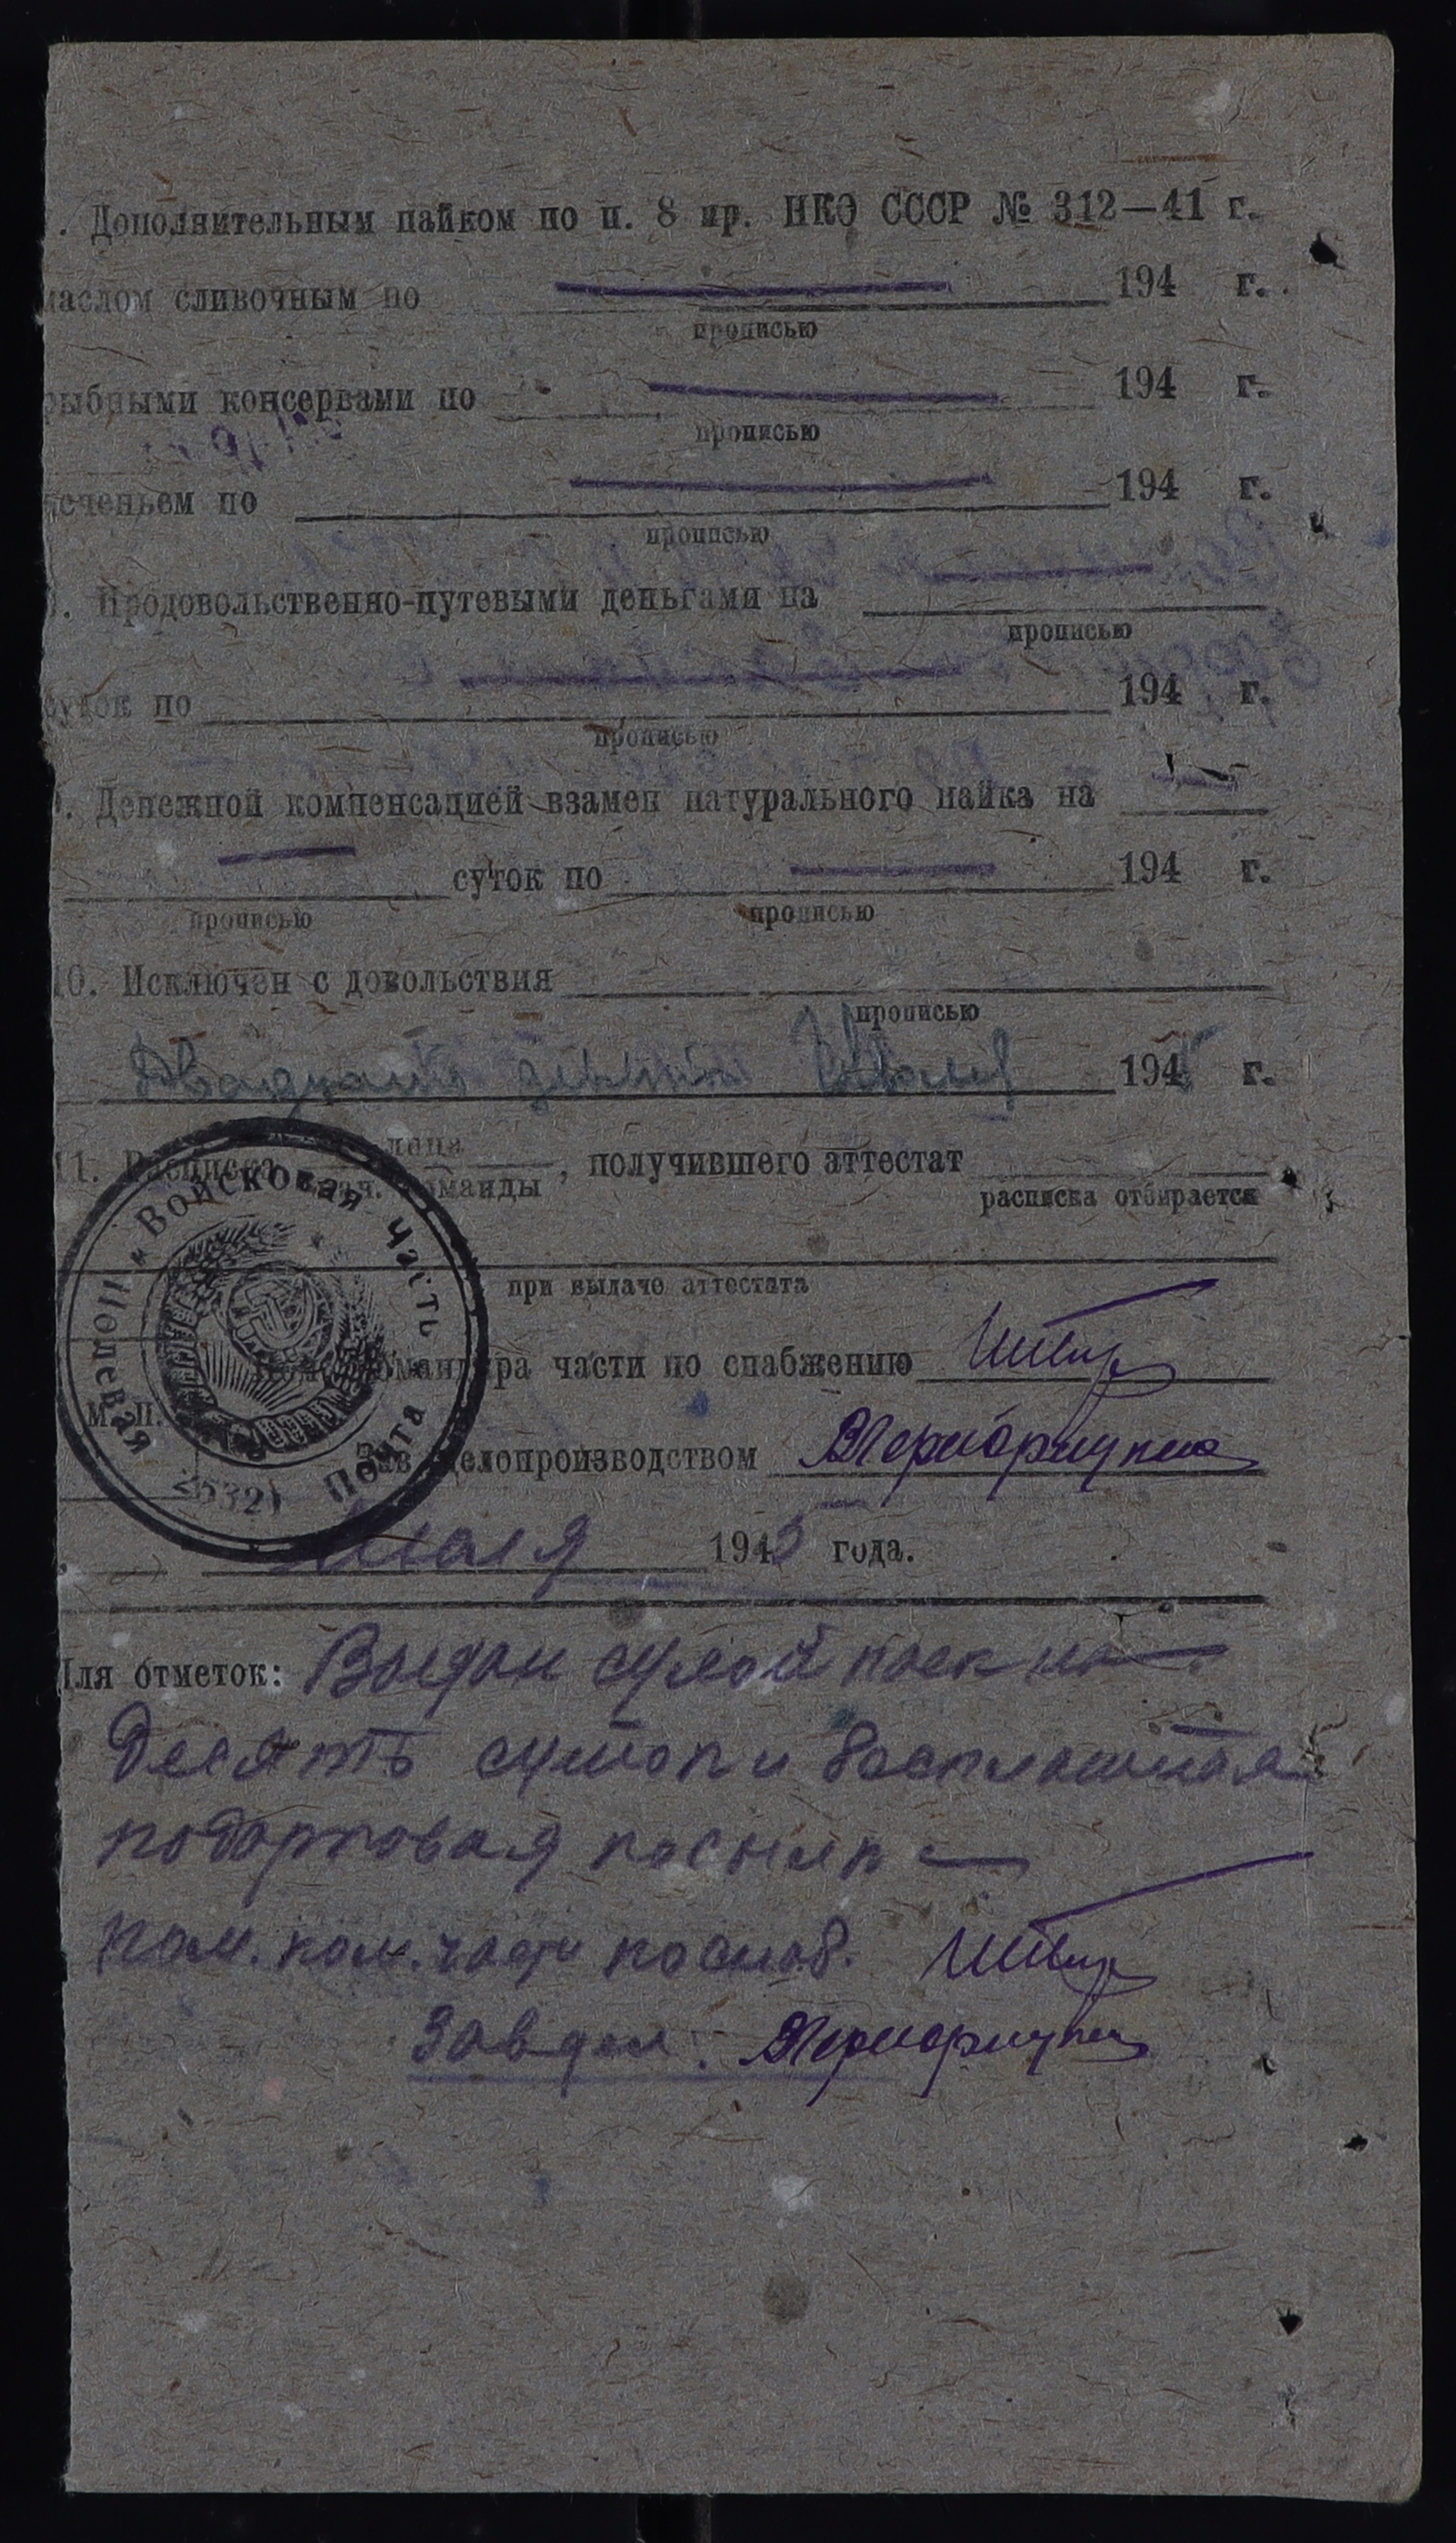 . Дополнительным пайком по п. 8 пр. НКО СССР № 312—41 г.
маслом сливочным по 194 г.
прописью
рыбными консервами по 194 г.
прописью
еченьем по 194 г.
прописью
. Продовольственно-путевыми деньгами на
прописью
суток по 194 г.
прописью
. Денежной компенсацией взамен натурального пайка на
суток по 194 г.
прописью прописью
10. Исключен с довольствия
прописью
Двадцать 1945 г.
11. Расписка лица
нач. команды , получившего аттестат
расписка отбирается
при выдаче аттестата
Войсковая часть
Полевая Почта
25321
командира части по снабжению
М. П.
Зав. делопроизводством
Июля 1945 года.
Для отметок: Выдан сухой паек на
Десять суток и бесплатная
подарковая посылка
Пом. ком. части по снаб.
Зав дел.